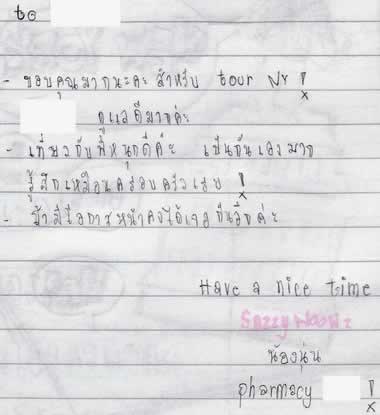 to
- ขอบคุณมากนะคะ สำหรับ tour NY !
ดูแลดีมากค่ะ
- เที่ยวกับพี่หนุกดีค่ะ เป็นกันเองมาก
รู้สึกเหมือนครอบครัวเลย !
- ถ้ามีโอกาสหน้าคงได้เจอกันอีกค่ะ
Have a nice time
น้องนุ่น
pharmacy !